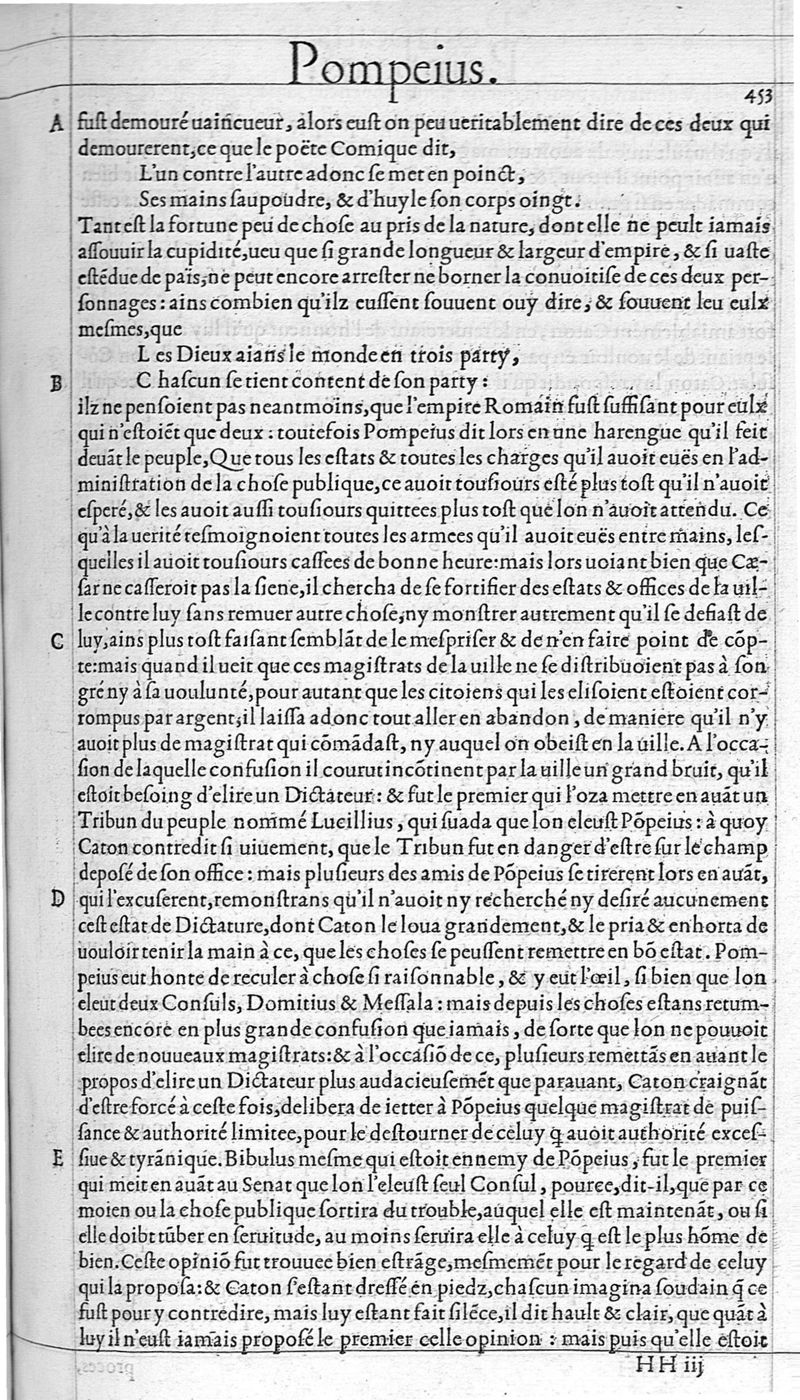 Pompeius.
453
A fuſt demouré uaincueur, alors euſt on peu ueritablement dire de ces deux qui
demourerent, ce que le poëte Comique dit,
L'un contre l'autre adonc ſe met en poinct,
Ses mains ſaupoudre, & d'huyle ſon corps oingt.
Tant eſt la fortune peu de choſe au pris de la nature, dont elle ne peult iamais
aſſouuir la cupidité, ueu que ſi grande longueur & largeur d'empire, & ſi uaſte
eſtẽdue de païs, ne peut encore arreſter ne borner la conuoitiſe de ces deux per-
ſonnages: ains combien qu'ilz euſſent ſouuent ouy dire, & ſouuent leu eulx
meſmes, que
Les Dieux aians le monde en trois party,
B Chaſcun ſe tient content de ſon party:
ilz ne penſoient pas neantmoins, que l'empire Romain fuſt ſuffiſant pour eulx
qui n'eſtoiẽt que deux: toutefois Pompeius dit lors en une harengue qu'il feit
deuãt le peuple, Que tous les eſtats & toutes les charges qu'il auoit euës en l'ad-
miniſtration de la choſe publique, ce auoit touſiours eſté plus toſt qu'il n'auoit
eſperé, & les auoit auſſi touſiours quittees plus toſt que lon n'auoit attendu. Ce
qu'à la uerité teſmoignoient toutes les armees qu'il auoit euës entre mains, leſ-
quelles il auoit touſiours caſſees de bonne heure: mais lors uoiant bien que Cæ-
ſar ne caſſeroit pas la ſiene, il chercha de ſe fortifier des eſtats & offices de la uil-
le contre luy ſans remuer autre choſe, ny monſtrer autrement qu'il ſe defiaſt de
C luy, ains plus toſt faiſant ſemblãt de le meſpriſer & de n'en faire point de cõp-
te: mais quand il ueit que ces magiſtrats de la uille ne ſe diſtribuoient pas à ſon
gré ny à ſa uoulunté, pour autant que les citoiens qui les eliſoient eſtoient cor-
rompus par argent, il laiſſa adonc tout aller en abandon, de maniere qu'il n'y
auoit plus de magiſtrat qui cõmãdaſt, ny auquel on obeiſt en la uille. A l'occa-
ſion de laquelle confuſion il courut incõtinent par la uille un grand bruit, qu'il
eſtoit beſoing d'elire un Dictateur: & fut le premier qui l'oza mettre en auãt un
Tribun du peuple nommé Lucillius, qui ſuada que lon eleuſt Põpeius: à quoy
Caton contredit ſi uiuement, que le Tribun fut en danger d'eſtre ſur le champ
depoſé de ſon office: mais pluſieurs des amis de Põpeius ſe tirerent lors en auãt,
D qui l'excuſerent, remonſtrans qu'il n'auoit ny recherché ny deſiré aucunement
ceſt eſtat de Dictature, dont Caton le loua grandement, & le pria & enhorta de
uouloir tenir la main à ce, que les choſes ſe peuſſent remettre en bõ eſtat. Pom-
peius eut honte de reculer à choſe ſi raiſonnable, & y eut l'œil, ſi bien que lon
eleut deux Conſuls, Domitius & Meſſala: mais depuis les choſes eſtans retum-
bees encore en plus grande confuſion que iamais, de ſorte que lon ne pouuoit
elire de nouueaux magiſtrats: & à l'occaſiõ de ce, pluſieurs remettãs en auant le
propos d'elire un Dictateur plus audacieuſemẽt que parauant, Caton craignãt
d'eſtre forcé à ceſte fois, delibera de ietter à Põpeius quelque magiſtrat de puiſ-
ſance & authorité limitee, pour le deſtourner de celuy q̃ auoit authorité exceſ-
E ſiue & tyrãnique. Bibulus meſme qui eſtoit ennemy de Põpeius, fut le premier
qui meit en auãt au Senat que lon l'eleuſt ſeul Conſul, pource, dit-il, que par ce
moien ou la choſe publique ſortira du trouble, auquel elle eſt maintenãt, ou ſi
elle doibt tũber en ſeruitude, au moins ſeruira elle à celuy q̃ eſt le plus hõme de
bien. Ceſte opiniõ fut trouuee bien eſtrãge, meſmemẽt pour le regard de celuy
qui la propoſa: & Caton ſ'eſtant dreſſé en piedz, chaſcun imagina ſoudain q̃ ce
fuſt pour y contredire, mais luy eſtant fait ſilẽce, il dit hault & clair, que quãt à
luy il n'euſt iamais propoſé le premier celle opinion: mais puis qu'elle eſtoit
HH iij